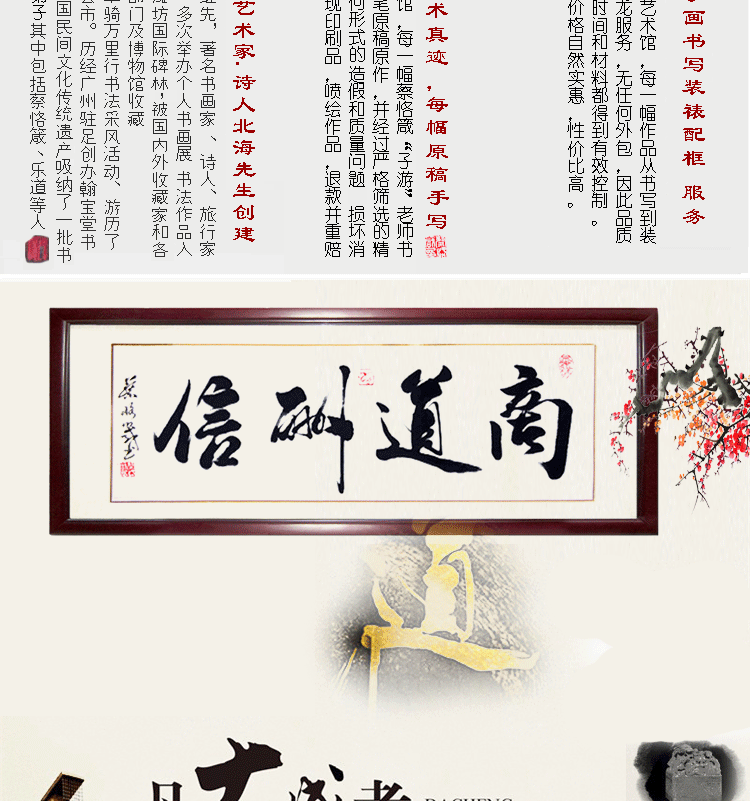 画书写装裱配框 服务
艺术馆，每一幅作品从书写到装
龙服务，无任何外包，因此品质
时间和材料都得到有效控制。
价格自然实惠，性价比高。
术真迹，每幅原稿手写
馆，每一幅蔡恪箴“子游”老师书
笔原稿原作，并经过严格筛选的精
何形式的造假和质量问题 损坏消
现印刷品，喷绘作品，退款并重赔
艺术家·诗人北海先生创建
先，著名书画家、诗人、旅行家
多次举办个人书画展 书法作品入
坊国际碑林，被国内外收藏家和各
部门及博物馆收藏
骑万里行书法采风活动、游历了
市。历经广州驻足创办翰宝堂书
国民间文化传统遗产吸纳了一批书
弟子其中包括蔡恪箴、乐道等人
商道酬信
道
凡大成者 DACHENG